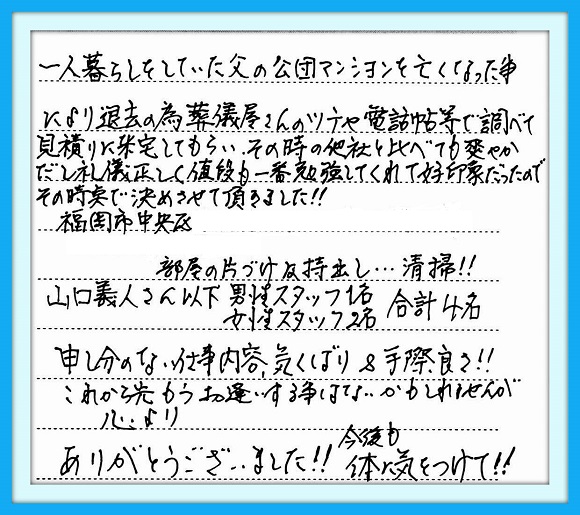 一人暮らしをしていた父の公団マンションを亡くなった事
により退去の為葬儀屋さんのツテや電話帖等で調べて
見積りに来宅してもらい、その時の他社と比べても爽やか
だし礼儀正しく値段も一番勉強してくれて好印象だったので
その時点で決めさせて頂きました!!
福岡市中央区
部屋の片づけ及持出し…清掃!!
山口義人さん以下 男性スタッフ1名
女性スタッフ2名
合計4名
申し分のない仕事内容、気くばり&手際良さ!!
これから先もうお逢いする事はないかもしれませんが
心より
ありがとうございました!!
今後も
体に気をつけて!!